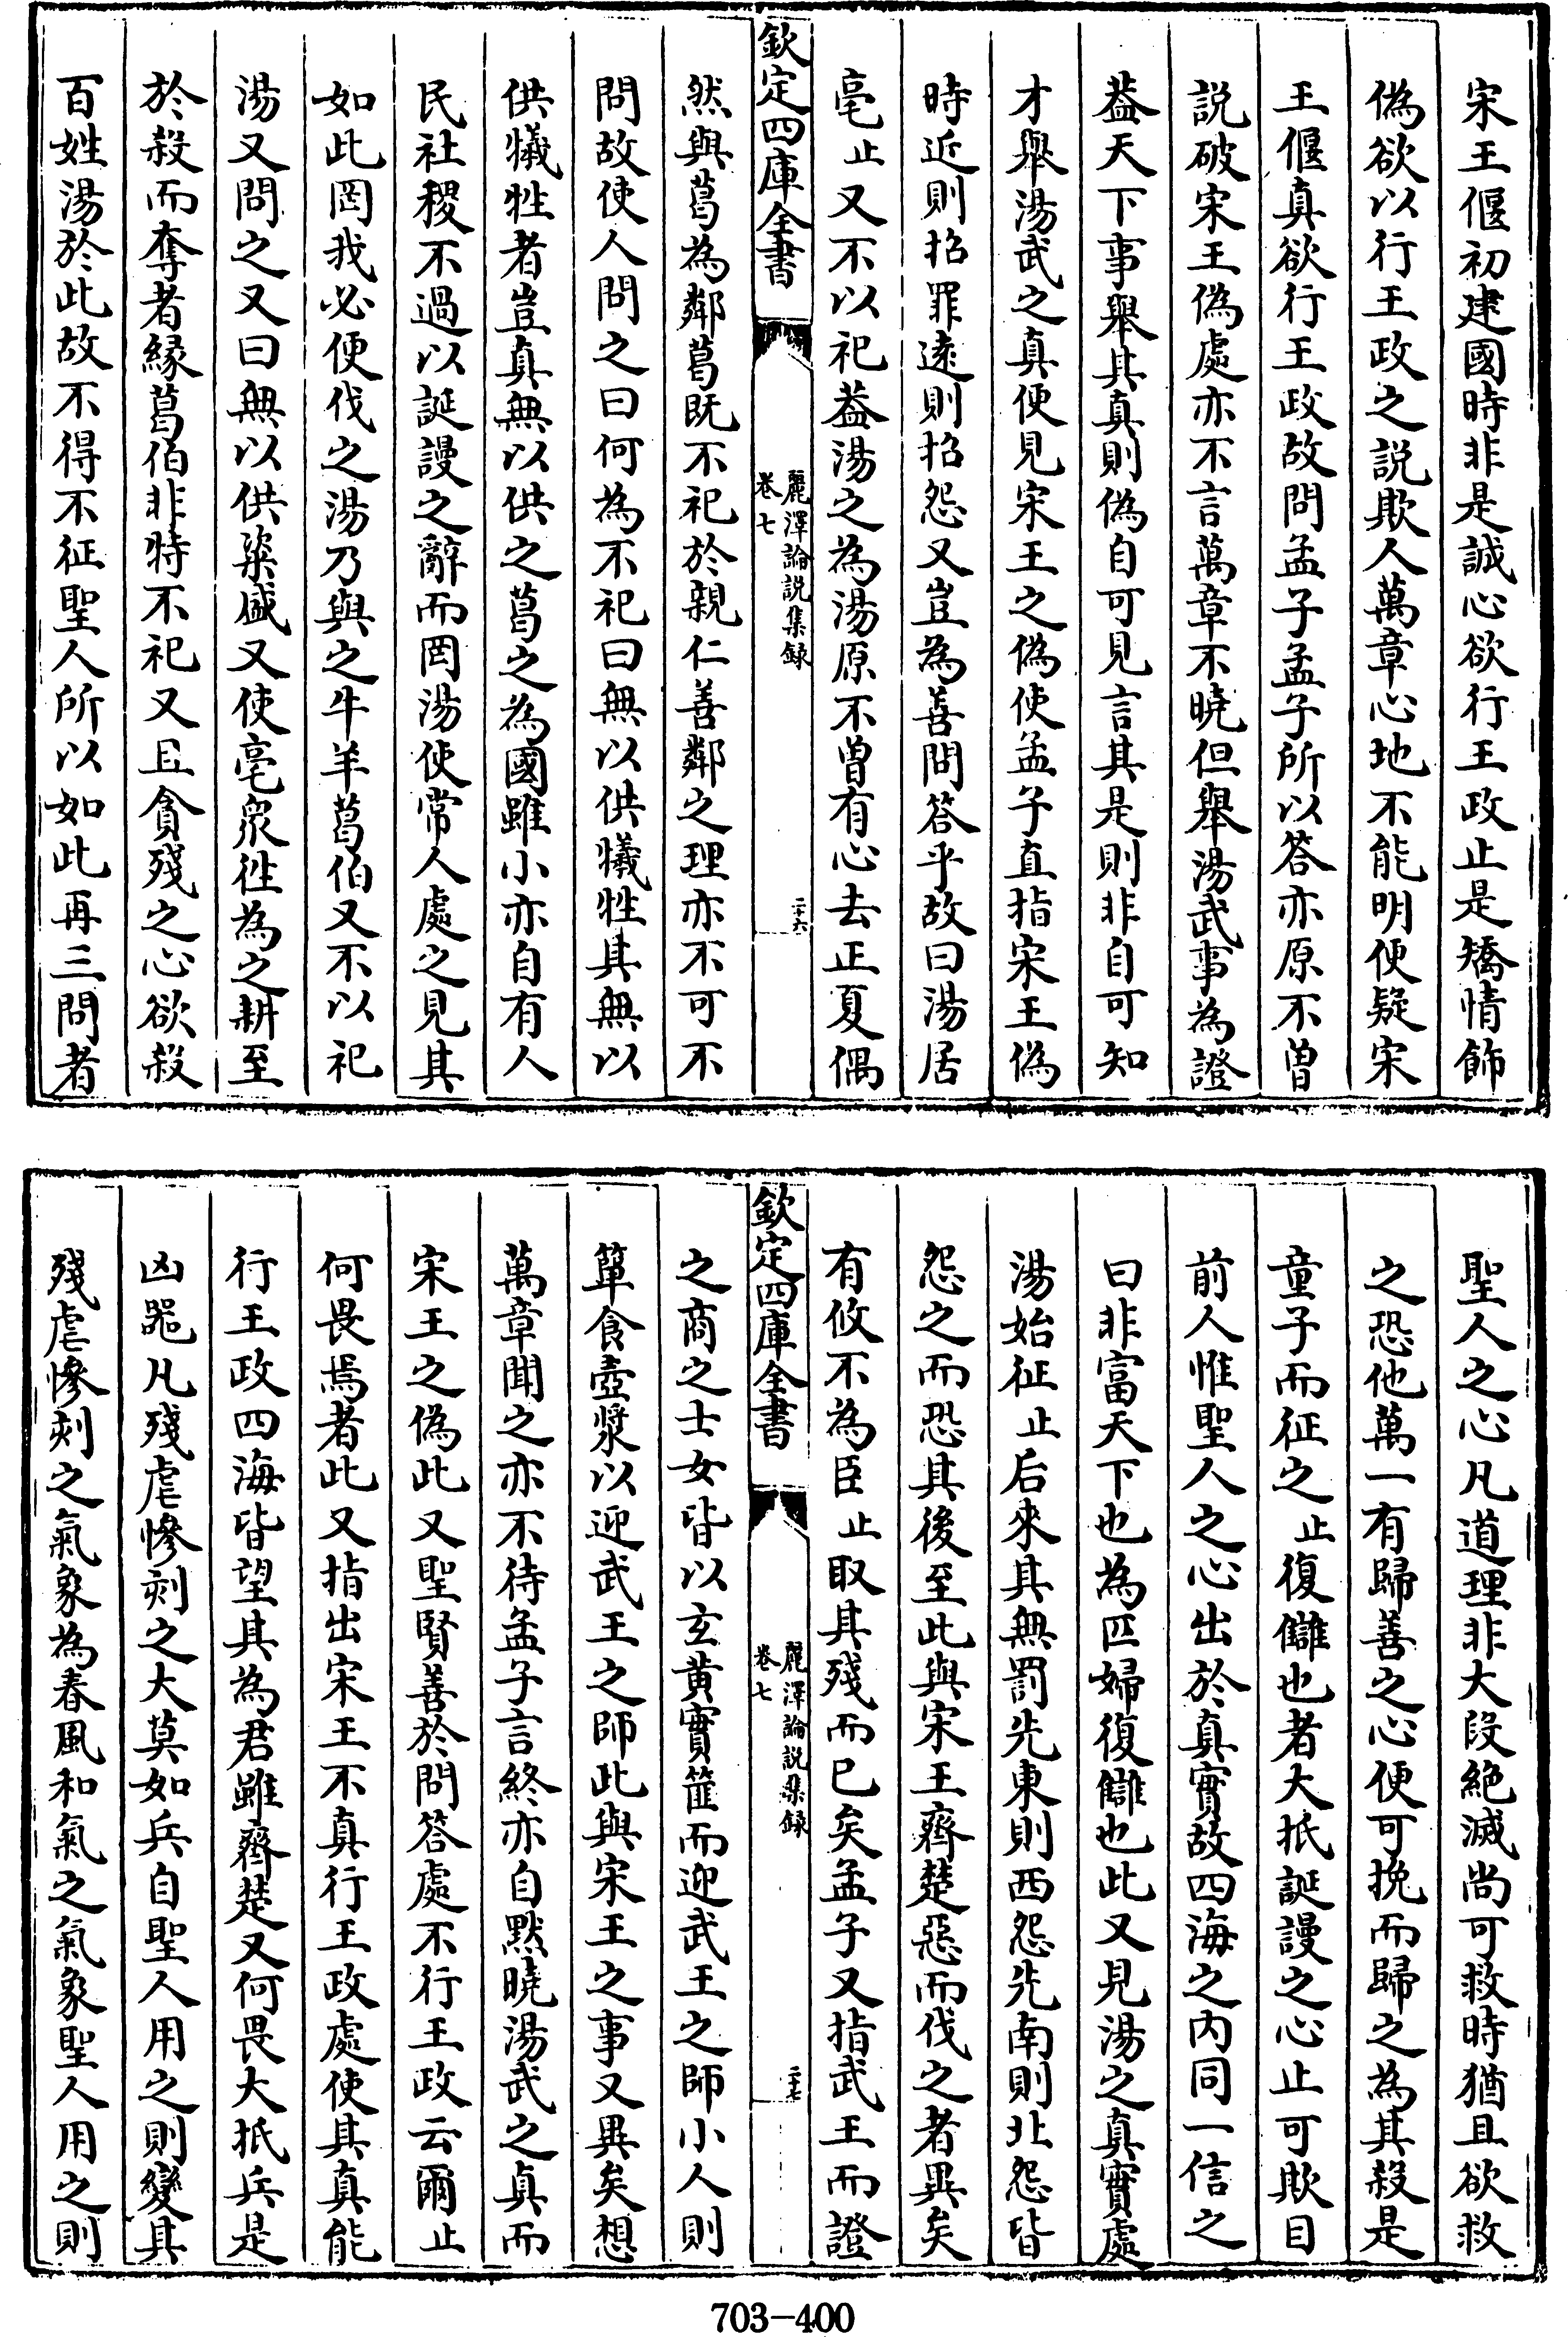 宋王偃初建國時非是誠心欲行王政止是矯情飾
偽欲以行王政之説欺人萬章心地不能明便疑宋
王偃真欲行王政故問孟子孟子所以答亦原不曾
説破宋王偽處亦不言萬章不曉但舉湯武事為證
葢天下事舉其真則偽自可見言其是則非自可知
才舉湯武之真便見宋王之偽使孟子直指宋王偽
時近則招罪逺則招怨又豈為善問答乎故曰湯居
亳止又不以祀葢湯之為湯原不曾有心去正夏偶
欽定四庫全書
麗澤論説集録
卷七
二十六
然與葛為鄰葛既不祀於親仁善鄰之理亦不可不
問故使人問之曰何為不祀曰無以供犧牲其無以
供犧牲者豈真無以供之葛之為國雖小亦自有人
民社稷不過以誕謾之辭而罔湯使常人處之見其
如此罔我必便伐之湯乃與之牛羊葛伯又不以祀
湯又問之又曰無以供粢盛又使亳衆徃為之耕至
於殺而奪者縁葛伯非特不祀又且貪殘之心欲殺
百姓湯於此故不得不征聖人所以如此再三問者
聖人之心凡道理非大段絶滅尚可救時猶且欲救
之恐他萬一有歸善之心便可挽而歸之為其殺是
童子而征之止復讎也者大抵誕謾之心止可欺目
前人惟聖人之心出於真實故四海之内同一信之
曰非富天下也為匹婦復讎也此又見湯之真實處
湯始征止后來其無罰先東則西怨先南則北怨皆
怨之而恐其後至此與宋王齊楚惡而伐之者異矣
有攸不為臣止取其殘而已矣孟子又指武王而證
欽定四庫全書
麗澤論説集録
卷七
二十七
之商之士女皆以玄黄實篚而迎武王之師小人則
簞食壺漿以迎武王之師此與宋王之事又異矣想
萬章聞之亦不待孟子言終亦自黙曉湯武之真而
宋王之偽此又聖賢善於問答處不行王政云爾止
何畏焉者此又指出宋王不真行王政處使其真能
行王政四海皆望其為君雖齊楚又何畏大抵兵是
凶器凡殘虐慘刻之大莫如兵自聖人用之則變其
殘虐慘刻之氣象為春風和氣之氣象聖人用之則
703-400